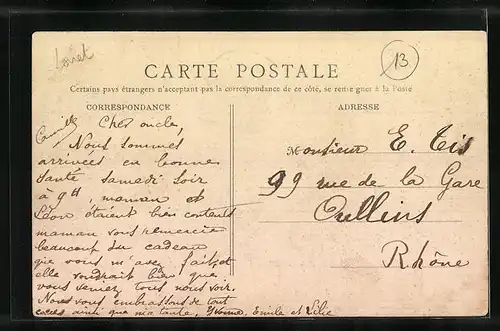 Loiret
13
CARTE POSTALE
Certains pays étrangers n'acceptant pas la correspondance de ce côté, se renseigner à la Poste
CORRESPONDANCE
ADRESSE
Cher oncle,
Nous sommes
arrivées en bonne
santé samedi soir
à 9H, maman et
Léon étaient bien contents
maman vous remercie
beaucoup du cadeau
que vous m'avez fait, et
elle voudrait bien que
vous veniez tous nous voir.
Nous vous embrassons de tout
cœur ainsi que ma tante. Yvonne, Emile et Lilie
Monsieur E. Tis
99 rue de la Gare
Oullins
Rhône